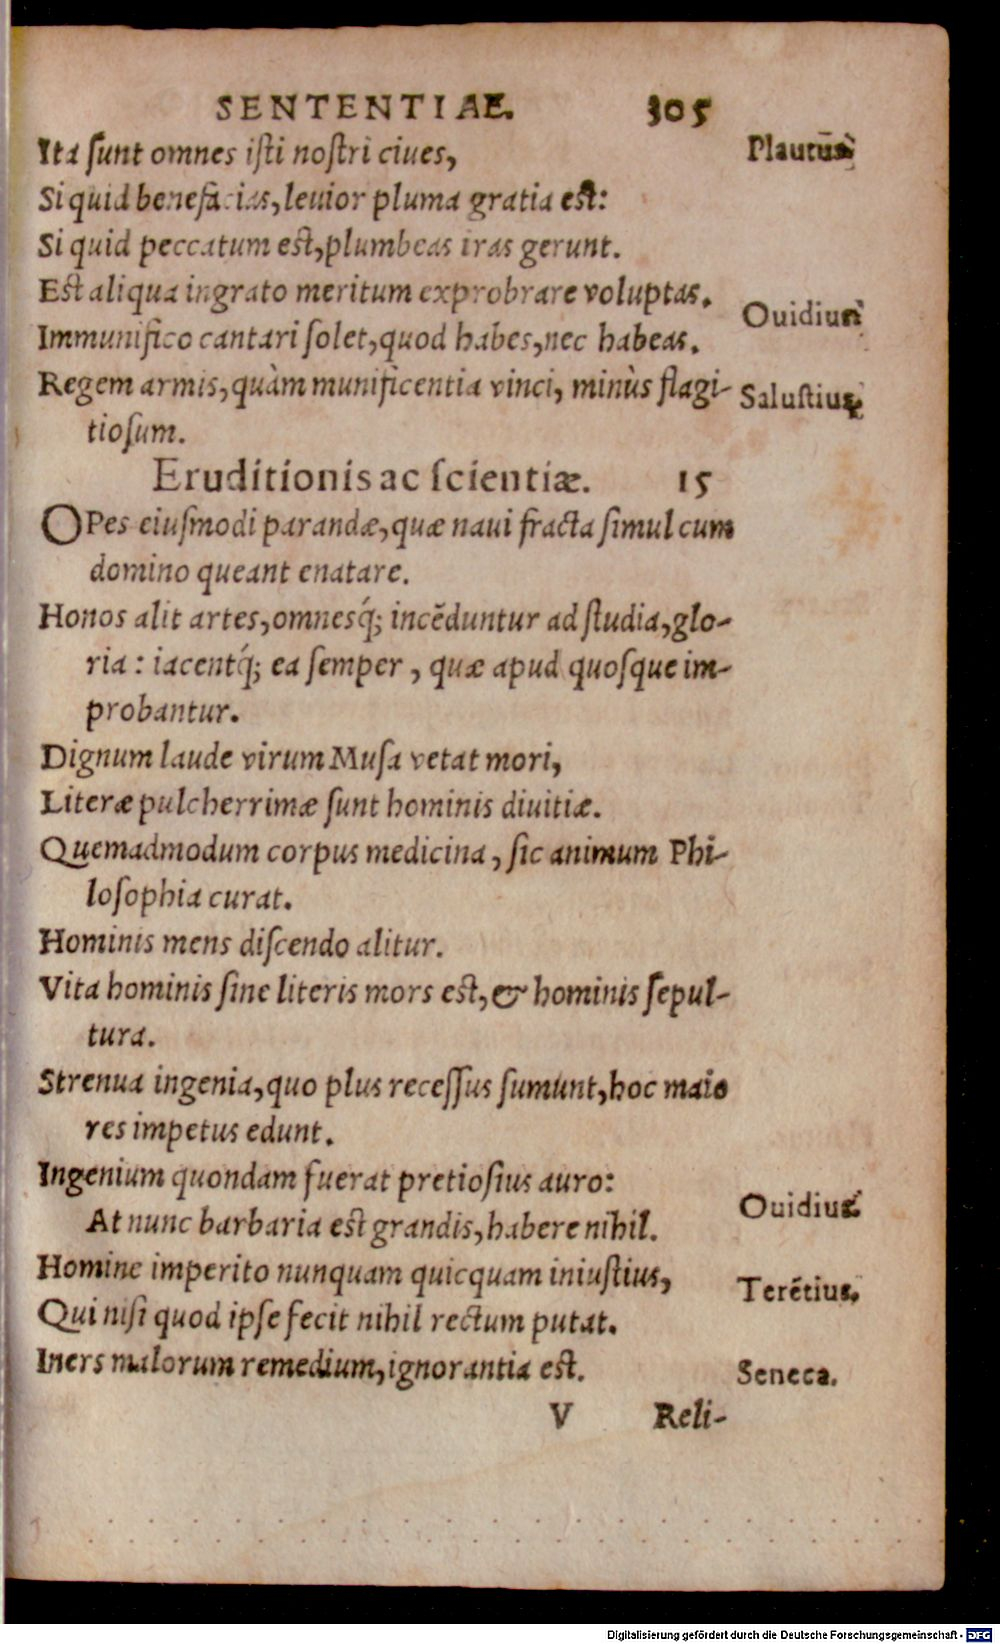 SENTENTIAE. 305
Ita ſunt omnes iſti noſtri ciues, Plautus
Si quid benefacias, leuior pluma gratia eſt:
Si quid peccatum eſt, plumbeas iras gerunt.
Eſt aliqua ingrato meritum exprobrare voluptas. Ouidius
Immunifico cantari ſolet, quod habes, nec habeas.
Regem armis, quàm munificentia vinci, minùs flagi- Saluſtius
tioſum.
Eruditionis ac ſcientiæ. 15
OPes eiuſmodi parandæ, quæ naui fracta ſimul cum
domino queant enatare.
Honos alit artes, omnesq́; incēduntur ad ſtudia, glo-
ria: iacentq́; ea ſemper, quæ apud quoſque im-
probantur.
Dignum laude virum Muſa vetat mori,
Literæ pulcherrimæ ſunt hominis diuitiæ.
Quemadmodum corpus medicina, ſic animum Phi-
loſophia curat.
Hominis mens diſcendo alitur.
Vita hominis ſine literis mors eſt, & hominis ſepul-
tura.
Strenua ingenia, quo plus receſſus ſumunt, hoc maio
res impetus edunt.
Ingenium quondam fuerat pretioſius auro: Ouidius
At nunc barbaria eſt grandis, habere nihil.
Homine imperito nunquam quicquam iniuſtius, Terētius.
Qui niſi quod ipſe fecit nihil rectum putat.
Iners malorum remedium, ignorantia eſt. Seneca.
V Reli-
Digitalisierung gefördert durch die Deutsche Forschungsgemeinschaft - DFG